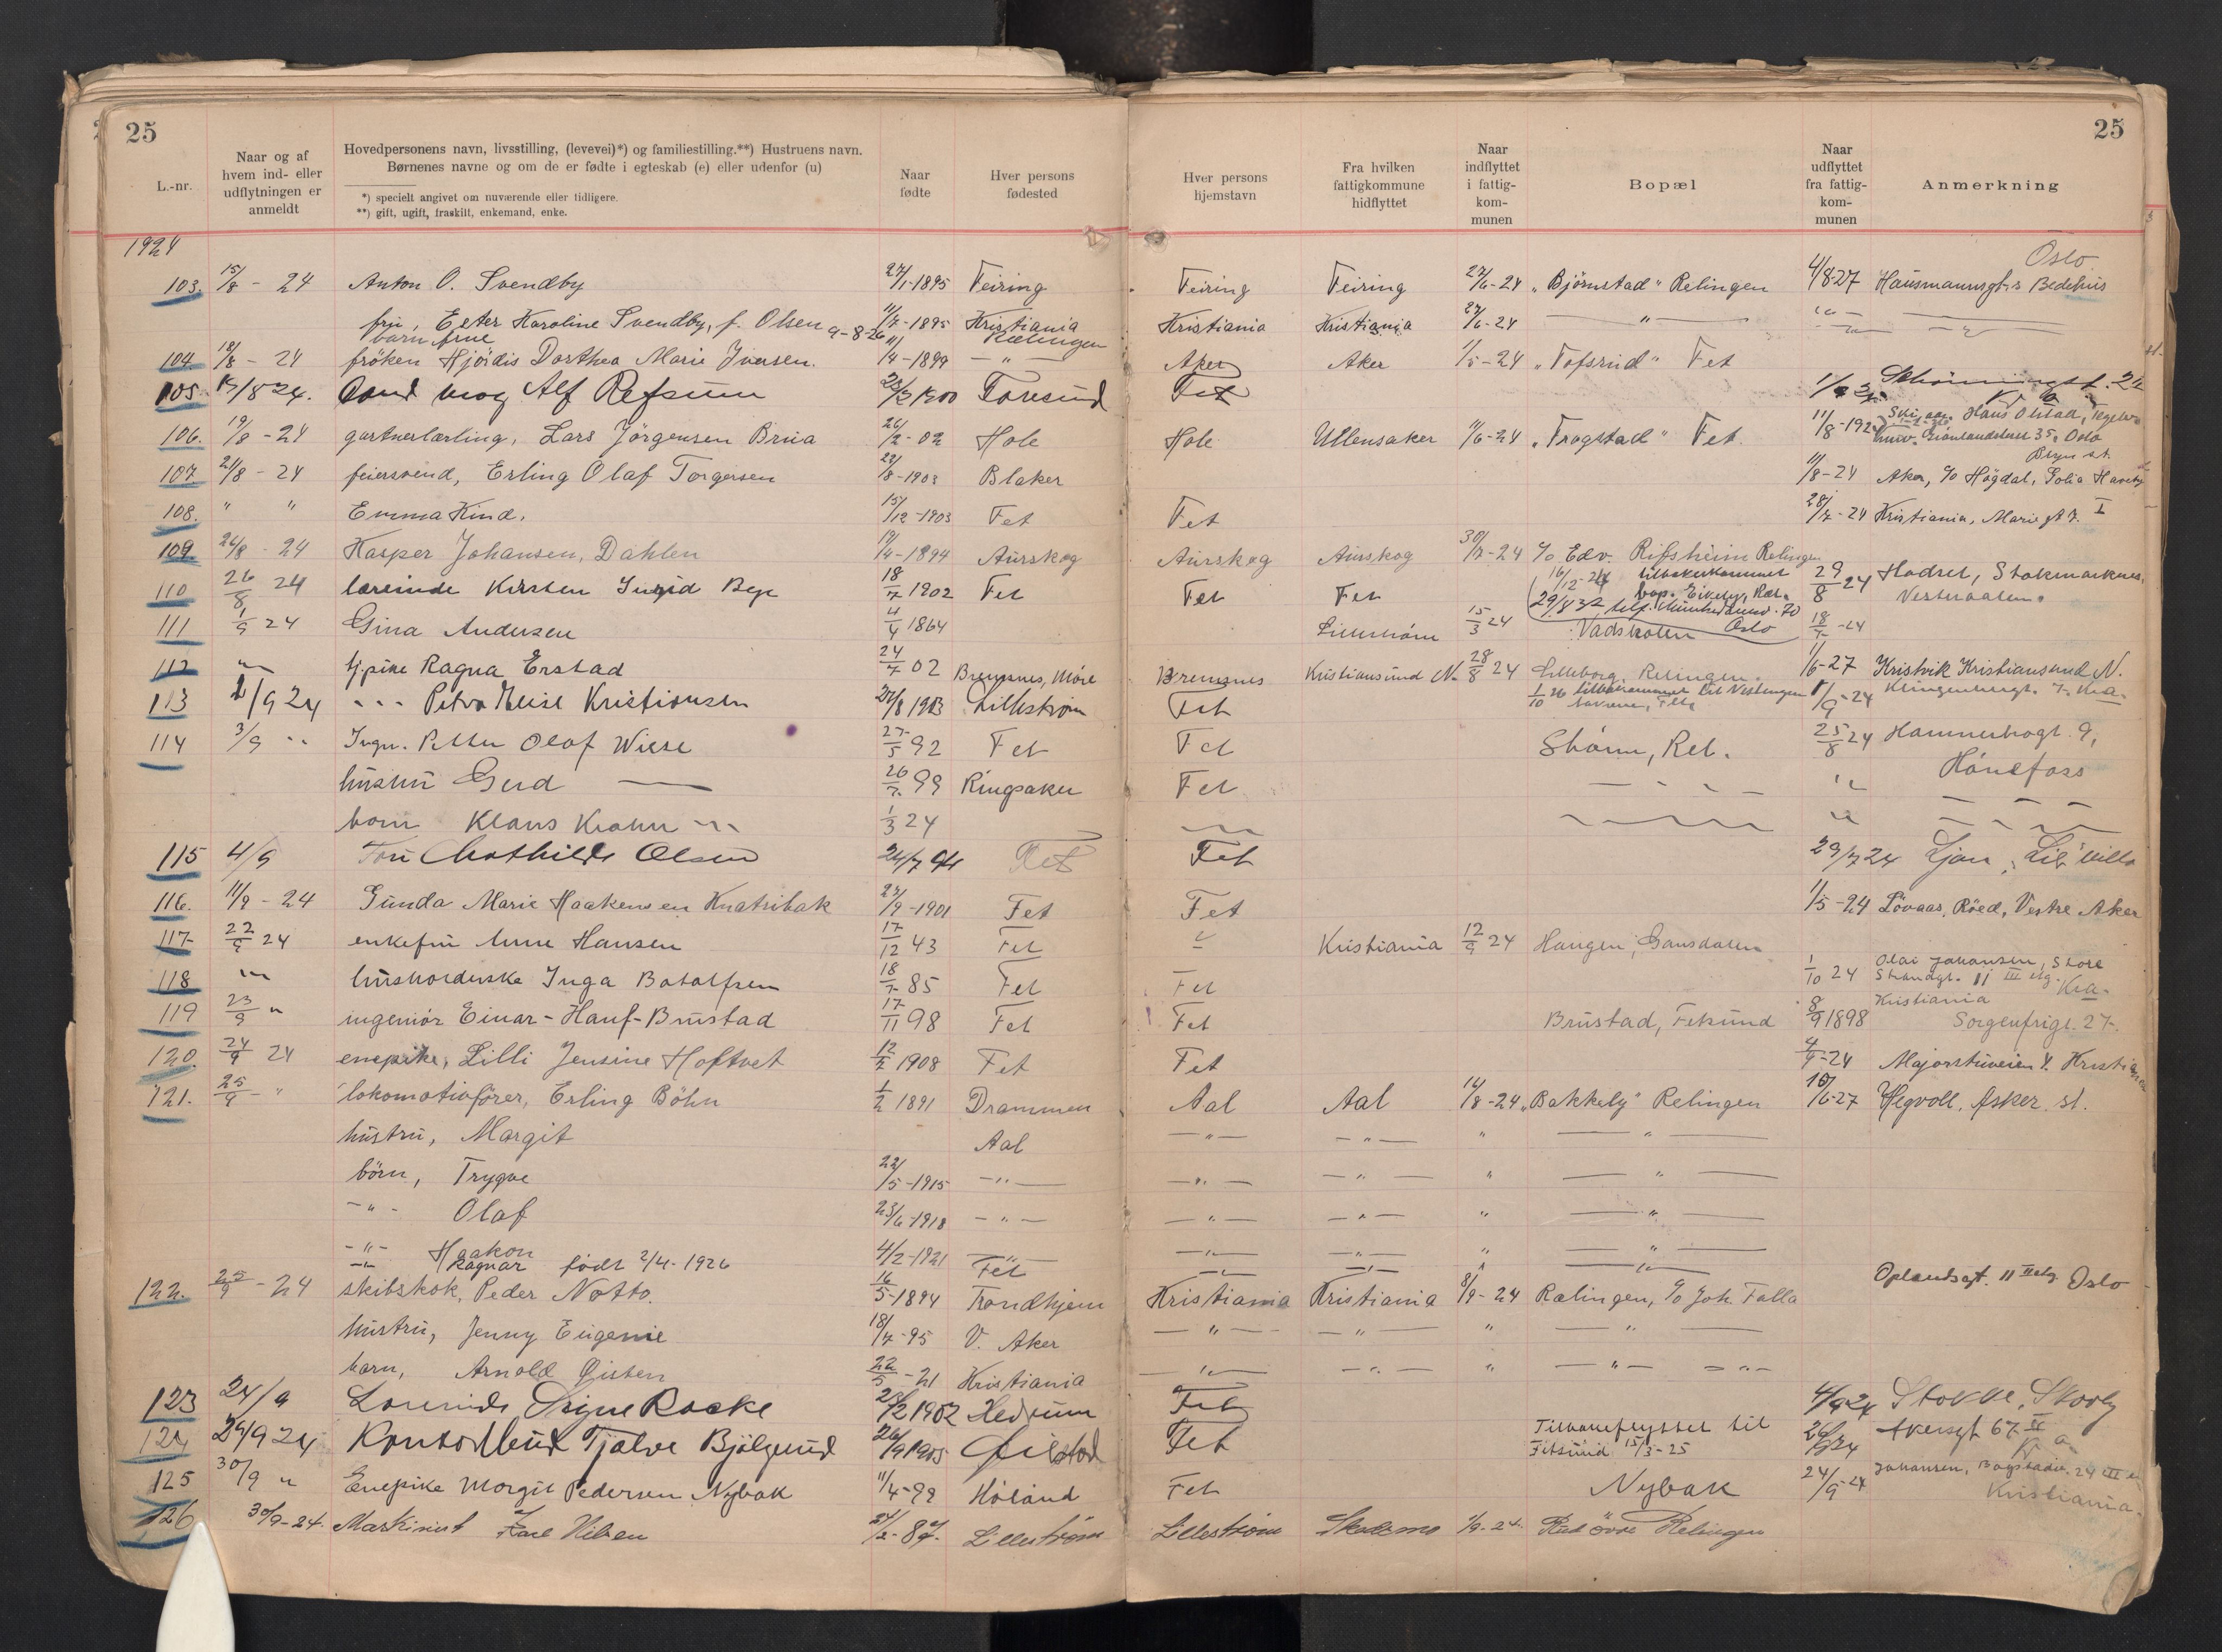 25
25
L.-nr.
Naar og af hvem ind- eller udflytningen er anmeldt
Hovedpersonens navn, livsstilling, (levevei)*) og familiestilling.**) Hustruens navn.
Børnenes navne og om de er fødte i egteskab (e) eller udenfor (u)
*) specielt angivet om nuværende eller tidligere.
**) gift, ugift, fraskilt, enkemand, enke.
Naar fødte
Hver persons fødested
Hver persons hjemstavn
Fra hvilken fattigkommune hidflyttet
Naar indflyttet i fattig-kom-munen
Bopæl
Naar udflyttet fra fattig-kom-munen
Anmerkning
1924
Oslo
103. 15/8 - 24 Anton O. Svendby 27/1-1895 Feiring Feiring Feiring 27/6-24 „Björnstad" Relingen 4/8-27 Hausmannsgt. Bedehus
fru, Ester Karoline Svendby, f. Olsen 11/7-1895 Kristiania Kristiania Kristiania 27/6-24 — " —
barn 9-8-26 Rælingen
104. 18/8 - 24 fröken Hjördis Dorthea Marie Iversen. 11/4-1899 — " — Aker Aker 1/5-24 „Tofsrud" Fet
105. /8 24. Alf Refsum 1900 Fet
106. 19/8 - 24 gartnerlærling, Lars Jörgensen Brua 24/2-02 Hole Hole Ullensaker 1/6-24 „Tragstad" Fet. 11/8-192 Hans Olstad, Oslo
Bryn st.
107. 21/8 - 24 feiersvend, Erling Olaf Torgersen 22/8-1903 Blaker 11/8-24 Aker, c/o Högdal,
108. " " Emma Kind. 15/12-1903 Fet Fet 28/7-24 Kristiania, Mariegt 7. I
109. 26/8 - 24 Kasper Johansen, Dahlen 19/4-1894 Aurskog Aurskog Aurskog 30/7-24 c/o Edv. Rifsheim Relingen
110 26/8 24 lærerinde Kirsten Ingrid Bye 18/7 1902 Fet Fet Fet 16/12-24 tilbakekommet 29/8 24 Hadsel, Stokmarknes,
29/8 32 Oslo Vesteraalen.
111 1/9 24 Gina Andersen 4/4 1864 Lillestrøm 15/3 24 Vadskolen 18/7 -24
112 " tj.pike Ragna Erstad 24/7 02 Bremsnes, Møre Bremsnes Kristiansund N. 28/8 24 Lilleborg, Relingen. 1/6-27 Kristvik Kristiansund N.
113 2/9 24 - - - Petra Elise Kristiansen 27/8 1903 Lillestrøm Fet 1/10 26 1/9-24 Klingenberggt. 7. Kra.
114 3/9 " Ingn. Petter Olaf Wiese 27/5 92 Fet Fet Strøm, Rel. 25/8 24 Hammerbogt. 9,
hustru Gerd — 26/7 99 Ringsaker Fet " Hønefoss
barn Klaus Krohn " 1/3 24
115 4/9 Fru Mathilde Olsen 24/7 94 Fet Fet 29/7 24 Ljan,
116. 11/9 - 24 Gunda Marie Haakensen Knatribak 27/9-1901 Fet Fet 1/5-24 Lövaas, Röed, Vestre Aker
117. 22/9 24 enkefru Anne Hansen 17/12 43 Fet Kristiania 12/9 24 Haugen, Gansdalen
118 " husholderske Inga Botolfsen 18/7 85 Fet Fet 1/10 24 Olai Johansen, Store
Strandgt. 11 III etg. Kra.
119 23/9 " ingeniør Einar-Hauf-Brustad 17/11 98 Fet Fet Brustad, Fetsund 8/9 1898 Kristiania
Sorgenfrigt. 27.
120. 24/9 24 enepike, Lilli Jensine Hoftvet 12/2 1908 Fet Fet 4/9-24 Majorstuveien 4. Kristiania
121. 25/9 - " lokomotivförer, Erling Böhn 1/2 1891 Drammen Aal Aal 14/8-24 „Bakkely" Relingen 10/6-27 Hegvoll, Asker st.
hustru, Margit Aal — " — — " — " — " —
börn, Trygve 22/5-1915 — " — — " — — " — " — " —
- " - Olaf 23/6-1918 — " — — " — — " — " — " —
- " - Haakon 4/2-1921 — " — — " — — " — " — " —
- " - Ragnar født 2/4-1926 Fet
122. 25/9 - 24 skibskok, Peder Notto. 16/5-1894 Trondhjem Kristiania Kristiania 8/9-24 Rælingen, c/o Joh. Falla Oplandsgt. 11 II etg. Oslo
hustru, Jenny Eugenie 18/4-95 V. Aker — " — — " — " — " —
barn, Arnold Øisten 22/5-21 Kristiania — " — — " — " — " —
123 24/9 Signe Racke 1902 Hedrum Fet 4/9 24 Stokke, Skoly
124 24/9 24 Tjalve Bjølgerud 1905 Fet Tilbakeflyttet til Fetsund 15/3-25 Akersgt 67 II
125 30/9 " Enepike Margit Pedersen Nybak 11/4-99 Høland Fet Nybak 24/9 24 Johansen, Bogstadv. 24 III
Kristiania.
126 30/9-24. Maskinist Karl Nilsen Lillestrøm Lillestrøm Skedsmo 1/9-24. Rud øvre Relingen